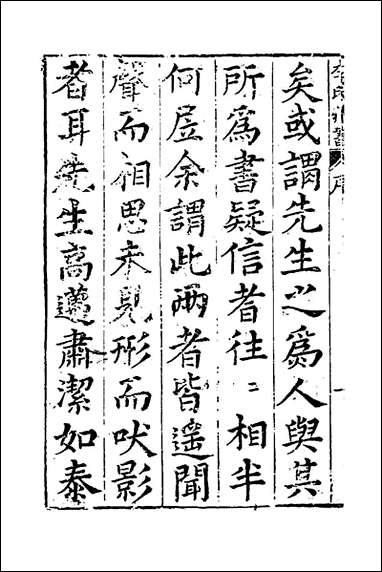 矣或謂先生之爲人與其
所爲書疑信者往〻相半
何居余謂此兩者皆遥聞
聲而相思未見形而吠影
者耳先生高邁肅潔如泰